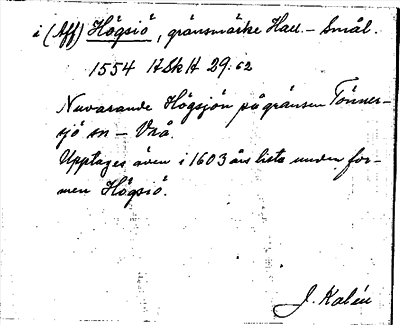 i (Aff) Högsiö, gränsmärke Hall.-Smål.
1554 HSkH 29:62
Nuvarande Högsjön på gränsen Tönner-
sjö sn - Vrå.
Upptages även i 1603 års lista under for-
men Högsiö.
J. Kalén